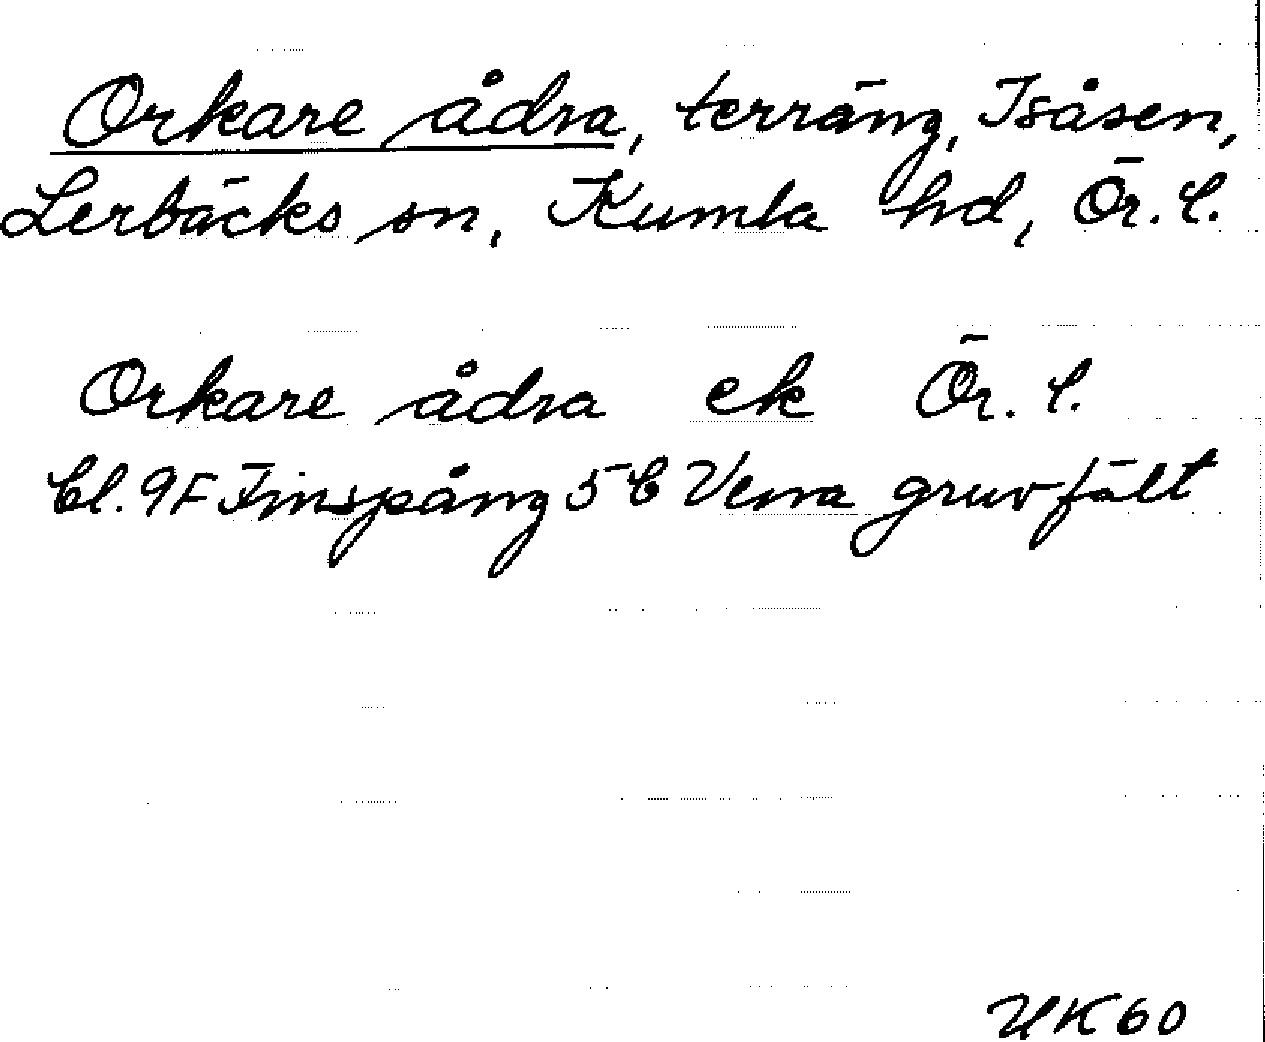 Orkare ådra, terräng, Isåsen,
Lerbäcks sn, Kumla hd, Ör. l.
Orkare ådra ek Ör. l.
Bl. 9F Finspång 5 C Vena gruvfält
UK 60